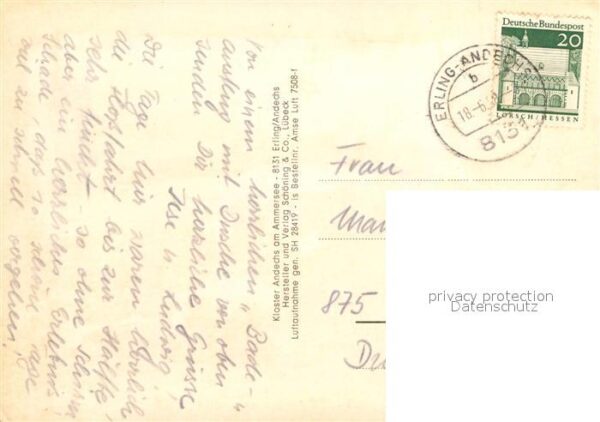 Von einem herrlichen „Bade-"
ausflug mit Dusche von oben
senden Dir herzliche Grüsse
Ilse u. Ludwig
Die Tage hier waren herrlich,
die Floßfahrt bis zur Hälfte
sehr - so ohne
aber ein herrliches Erlebnis.
Schade, daß so schöne Tage
viel zu schnell vergehen.
Kloster Andechs am Ammersee - 8131 Erling/Andechs
Hersteller und Verlag Schöning & Co., Lübeck
Luftaufnahme gen. SH 28419 - is Bestellnr. Amse Luft 7508-f
Deutsche Bundespost
20
LORSCH/HESSEN
ERLING-ANDECHS
b
18.-6.
8131
Frau
Mar
875
privacy protection
Datenschutz